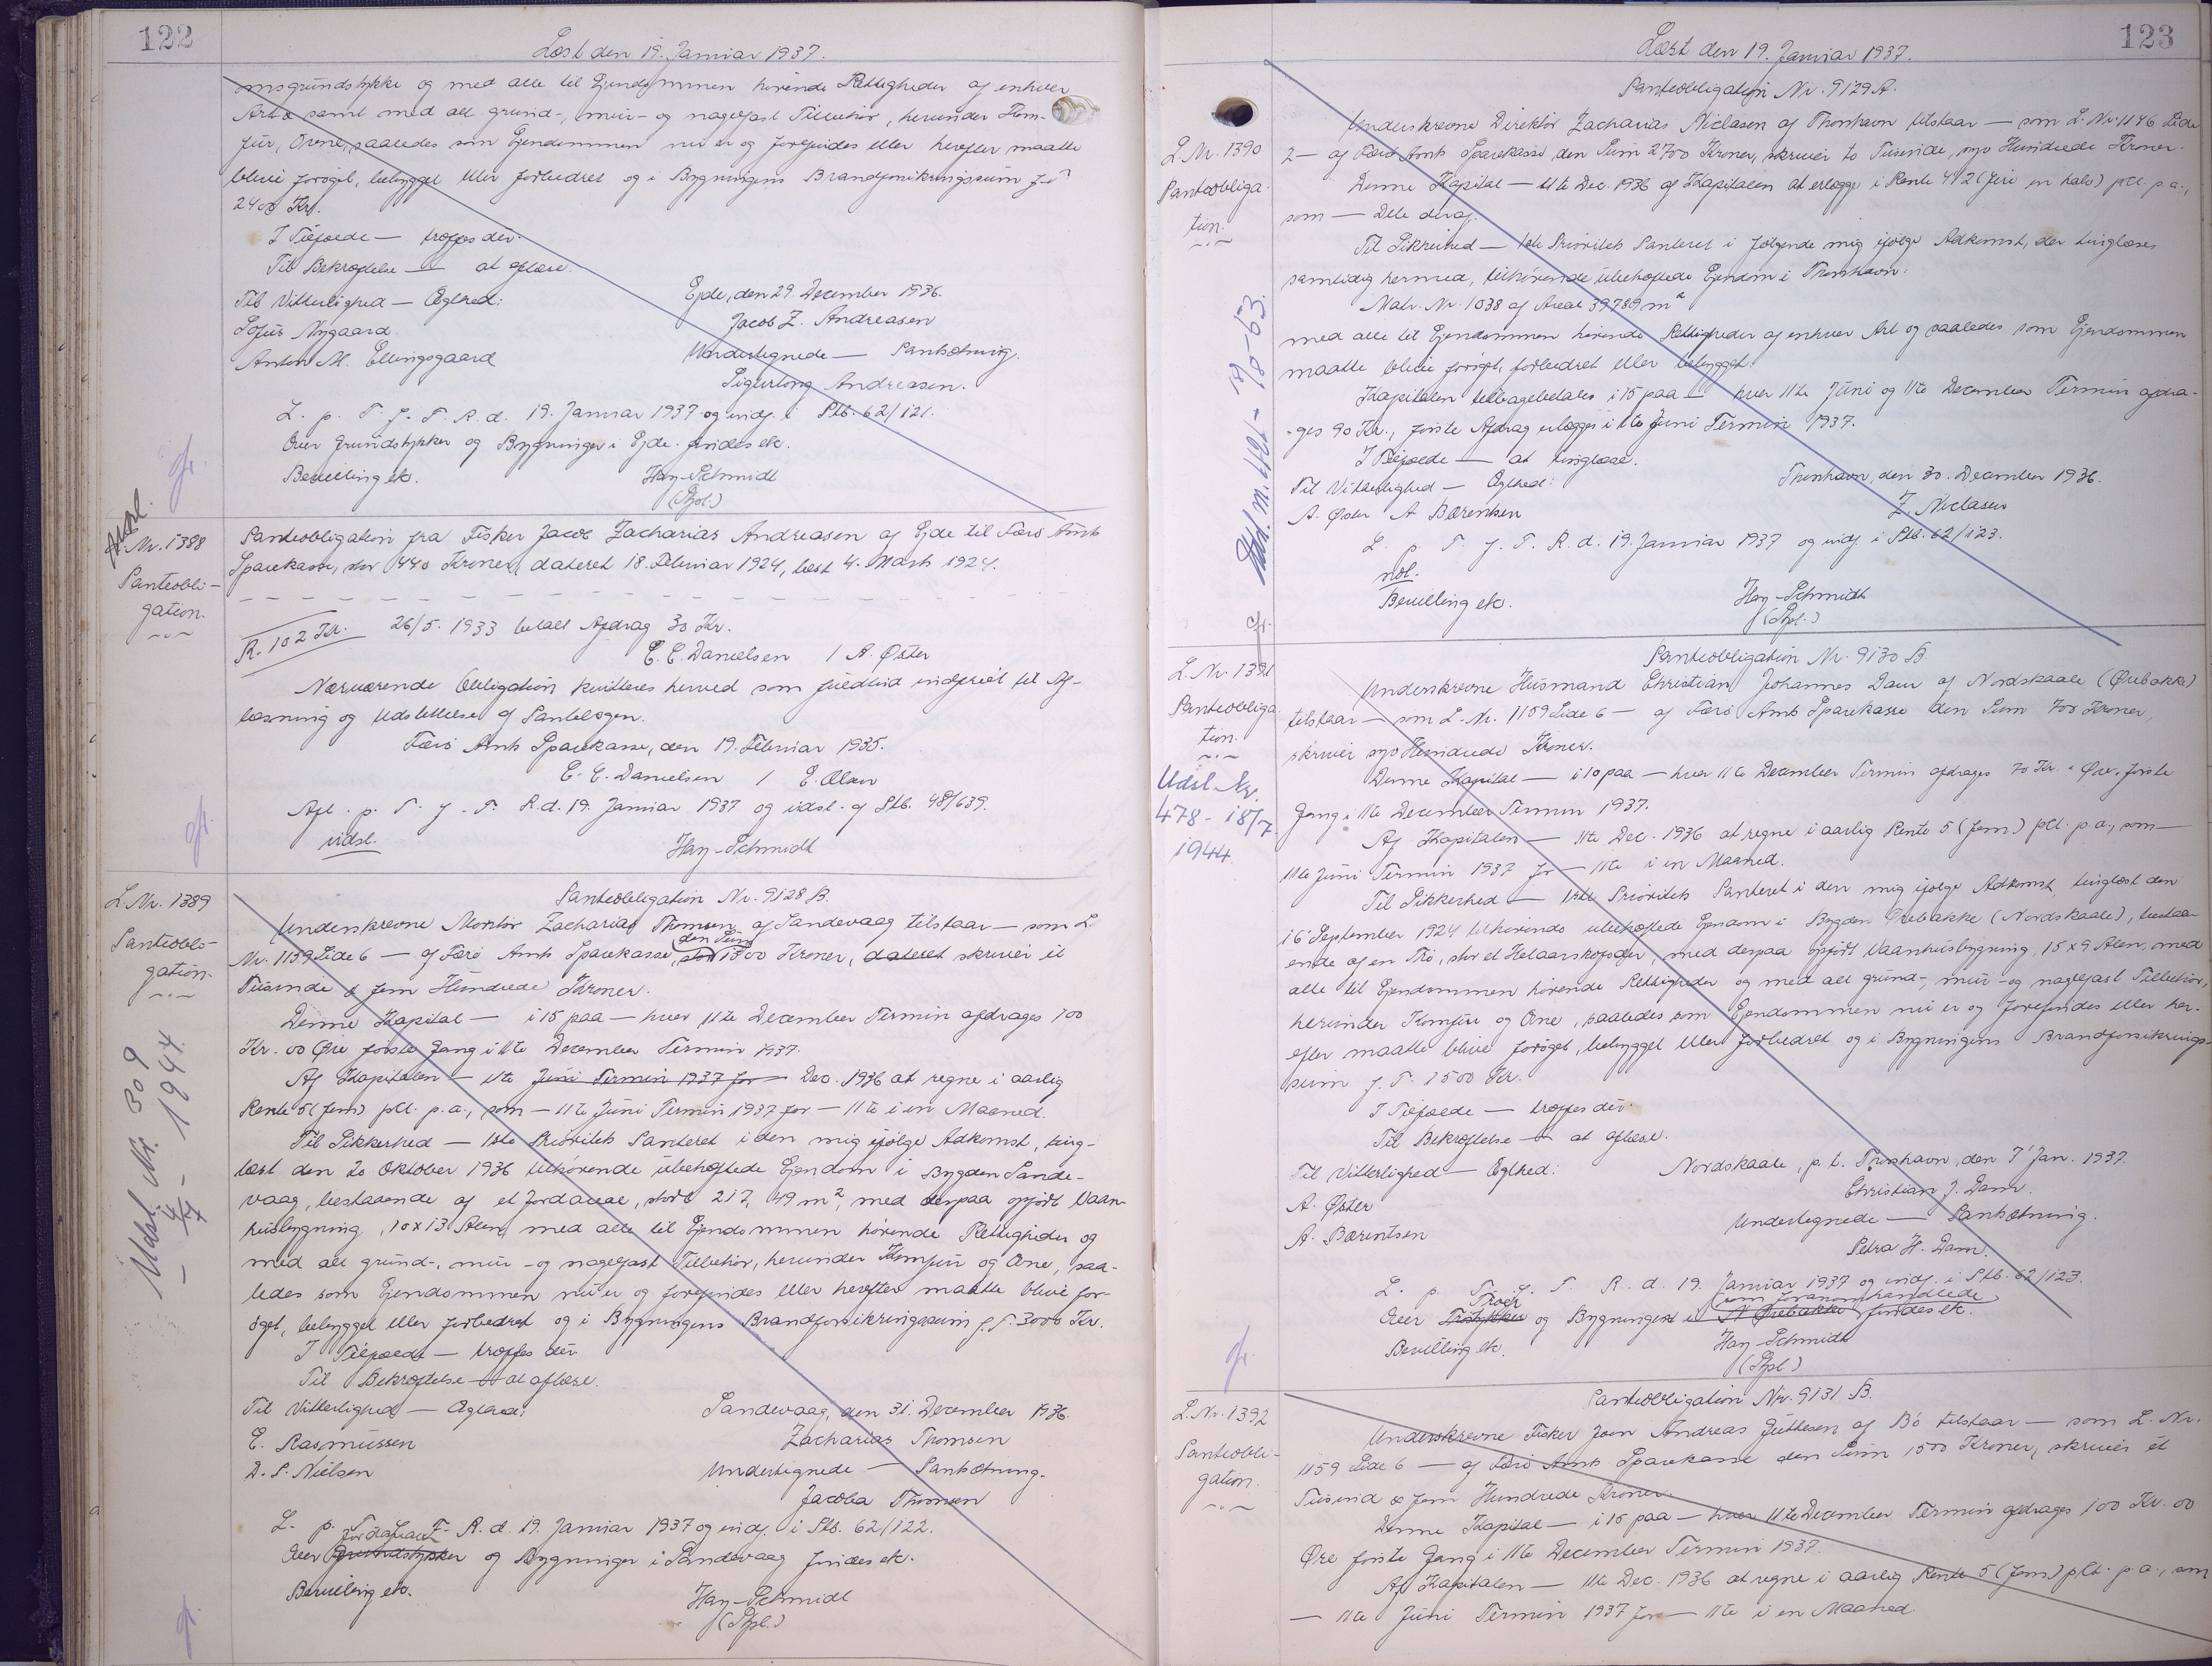 122
Læst den 19. Januar 1937.
omsgrundstykke og med alle til Ejendommen hørende Rettigheder af enhver
Art & samt med alt grund-, mur- og nagelfast Tilbehør, herunder Kom-
fur, Ovne, saaledes som Ejendommen nu er og forefindes eller herefter maatte
blive forøget, bebygget eller forbedret og i Bygningens Brandforsikringssum
2400 Kr.
I Tilfælde — træffes der.
Til Bekræftelse — at aflæse.
Til Vitterlighed — Ægthed:
Ejde, den 29. December 1936.
Sofus Nygaard
Jacob Z. Andreasen
Anton M. Ellingsgaard
Undertegnede — Pantsætning.
Sigurlong Andreasen.
L. p. T. f. F. R. d. 19. Januar 1937 og indf. i Ptb. 62/121.
Over Grundstykker og Bygninger i Ejde findes etc.
Bevilling etc.
Hay-Schmidt
(Spl.)
L. Nr. 1388
Panteobli-
gation.
Panteobligation fra Fisker Jacob Zacharias Andreasen af Ejde til Færø Amts
Sparekasse, stor 440 Kroner, dateret 18. Februar 1924, læst 4. Marts 1924.
R. 102 Kr.
26/5. 1933 betalt Afdrag 30 Kr.
E. E. Danielsen / A. Øster
Nærværende Obligation kvitteres herved som fuldtud indfriet til Af-
læsning og Udslettelse af Pantebogen.
Færø Amts Sparekasse, den 19. Februar 1935.
E. E. Danielsen / E. Olsen
Afl. p. T. f. F. R. d. 19. Januar 1937 og udsl. af Ptb. 48/639.
udsl.
Hay-Schmidt
L. Nr. 1389
Panteobli-
gation.
Udsl. Nr. 309
4/7 - 1944.
Panteobligation Nr. 9128 B.
Underskrevne Montør Zacharias Thomsen af Sandevaag tilstaar — som L.
Nr. 1159 Side 6 — af Færø Amts Sparekasse, stor den Sum 1500 Kroner, dateret skriver et
Tusinde & fem Hundrede Kroner.
Denne Kapital — i 15 paa — hver 11te December Termin afdrages 100
Kr. 00 Øre første Gang i 11te December Termin 1937.
Af Kapitalen — 11te Juni Termin 1937 for — Dec. 1936 at regne i aarlig
Rente 5 (fem) pCt. p. a., som — 11te Juni Termin 1937 for — 11te i en Maaned.
Til Sikkerhed — 1ste Prioritets Panteret i den mig ifølge Adkomst, ting-
læst den 20 Oktober 1936 tilhørende ubehæftede Ejendom i Bygden Sande-
vaag, bestaaende af et Jordareal, stort 217,49 m², med derpaa opført Vaan-
husbygning, 10 x 13 Alen, med alle til Ejendommen hørende Rettigheder og
med alt grund-, mur- og nagelfast Tilbehør, herunder Komfur og Ovne, saa-
ledes som Ejendommen nu er og forefindes eller herefter maatte blive for-
øget, bebygget eller forbedret og i Bygningens Brandforsikringssum f. T. 3000 Kr.
I Tilfælde — træffes der.
Til Bekræftelse — at aflæse.
Til Vitterlighed — Ægthed:
Sandevaag, den 31. December 1936.
E. Rasmussen
Zacharias Thomsen
D. P. Nielsen
Undertegnede — Pantsætning.
Jacoba Thomsen
L. p. T. f. F. R. d. 19. Januar 1937 og indf. i Ptb. 62/122.
Over Grundstykker Jordareal og Bygninger i Sandevaag findes etc.
Bevilling etc.
Hay-Schmidt
(Spl.)
123
Læst den 19. Januar 1937.
L. Nr. 1390
Panteobliga-
tion.
Panteobligation Nr. 9129 A.
Underskrevne Direktør Zacharias Niclasen af Thorshavn tilstaar — som L. Nr. 1146 Side
2 — af Færø Amts Sparekasse den Sum 2700 Kroner, skriver to Tusinde, syv Hundrede Kroner.
Denne Kapital — 11te Dec. 1936 af Kapitalen at erlægge i Rente 4 1/2 (fire en halv) pCt. p. a.,
som — Dele deraf.
Til Sikkerhed — 1ste Prioritets Panteret i følgende mig ifølge Adkomst, der tinglæses
samtidig hermed, tilhørende ubehæftede Ejendom i Thorshavn:
Matr. Nr. 1038 af Areal 39789 m²
med alle til Ejendommen hørende Rettigheder af enhver Art og saaledes som Ejendommen
maatte blive forøget, forbedret eller bebygget.
Kapitalen tilbagebetales i 15 paa — hver 11te Juni og 11te December Termin afdra-
ges 90 Kr., første Afdrag erlægges i 11te Juni Termin 1937.
I Tilfælde — at tinglæse.
Til Vitterlighed — Ægthed:
Thorshavn, den 30. December 1936.
A. Øster A. Bærentsen
Z. Niclasen
L. p. T. f. F. R. d. 19. Januar 1937 og indf. i Ptb. 62/123.
Bevilling etc.
Hay-Schmidt
(Spl.)
L. Nr. 1391
Panteobliga-
tion.
Udsl. Nr.
478 - 18/7.
1944.
Panteobligation Nr. 9130 B.
Underskrevne Husmand Christian Johannes Dam af Nordskaale (Ørebakke)
tilstaar — som L. Nr. 1159 Side 6 — af Færø Amts Sparekasse den Sum 700 Kroner,
skriver syv Hundrede Kroner.
Denne Kapital — i 10 paa — hver 11te December Termin afdrages 70 Kr. " Øre, første
Gang i 11te December Termin 1937.
Af Kapitalen — 11te Dec. 1936 at regne i aarlig Rente 5 (fem) pCt. p. a., som —
11te Juni Termin 1937 for — 11te i en Maaned.
Til Sikkerhed — 1ste Prioritets Panteret i den mig ifølge Adkomst, tinglæst den
16 September 1924 tilhørende ubehæftede Ejendom i Bygden Ørebakke (Nordskaale), bestaa-
ende af en Trø, stor et Helaarskofoder, med derpaa opført Vaanhusbygning, 15 x 9 Alen, med
alle til Ejendommen hørende Rettigheder og med alt grund-, mur- og nagelfast Tilbehør,
herunder Komfur og Ovne, saaledes som Ejendommen nu er og forefindes eller her-
efter maatte blive forøget, bebygget eller forbedret og i Bygningens Brandforsikrings-
sum f. T. 1500 Kr.
I Tilfælde — træffes der.
Til Bekræftelse — at aflæse.
Til Vitterlighed — Ægthed:
Nordskaale, p. t. Thorshavn, den 7' Jan. 1937.
A. Øster
Christian J. Dam.
A. Bærentsen
Undertegnede — Pantsætning.
Petra H. Dam.
L. p. T. f. F. R. d. 19. Januar 1937 og indf. i Ptb. 62/123.
Over Trøstykker Trøer og Bygninger i N. Ørebakke som foranomhandlede findes etc.
Bevilling etc.
Hay-Schmidt
(Spl.)
L. Nr. 1392
Panteobli-
gation.
Panteobligation Nr. 9131 B.
Underskrevne Fisker Joen Andreas Juttesen af Bø tilstaar — som L. Nr.
1159 Side 6 — af Færø Amts Sparekasse den Sum 1500 Kroner, skriver et
Tusind & fem Hundrede Kroner.
Denne Kapital — i 15 paa — hver 11te December Termin afdrages 100 Kr. 00
Øre første Gang i 11te December Termin 1937.
Af Kapitalen — 11te Dec. 1936 at regne i aarlig Rente 5 (fem) pCt. p. a., som
— 11te Juni Termin 1937 for — 11te i en Maaned.